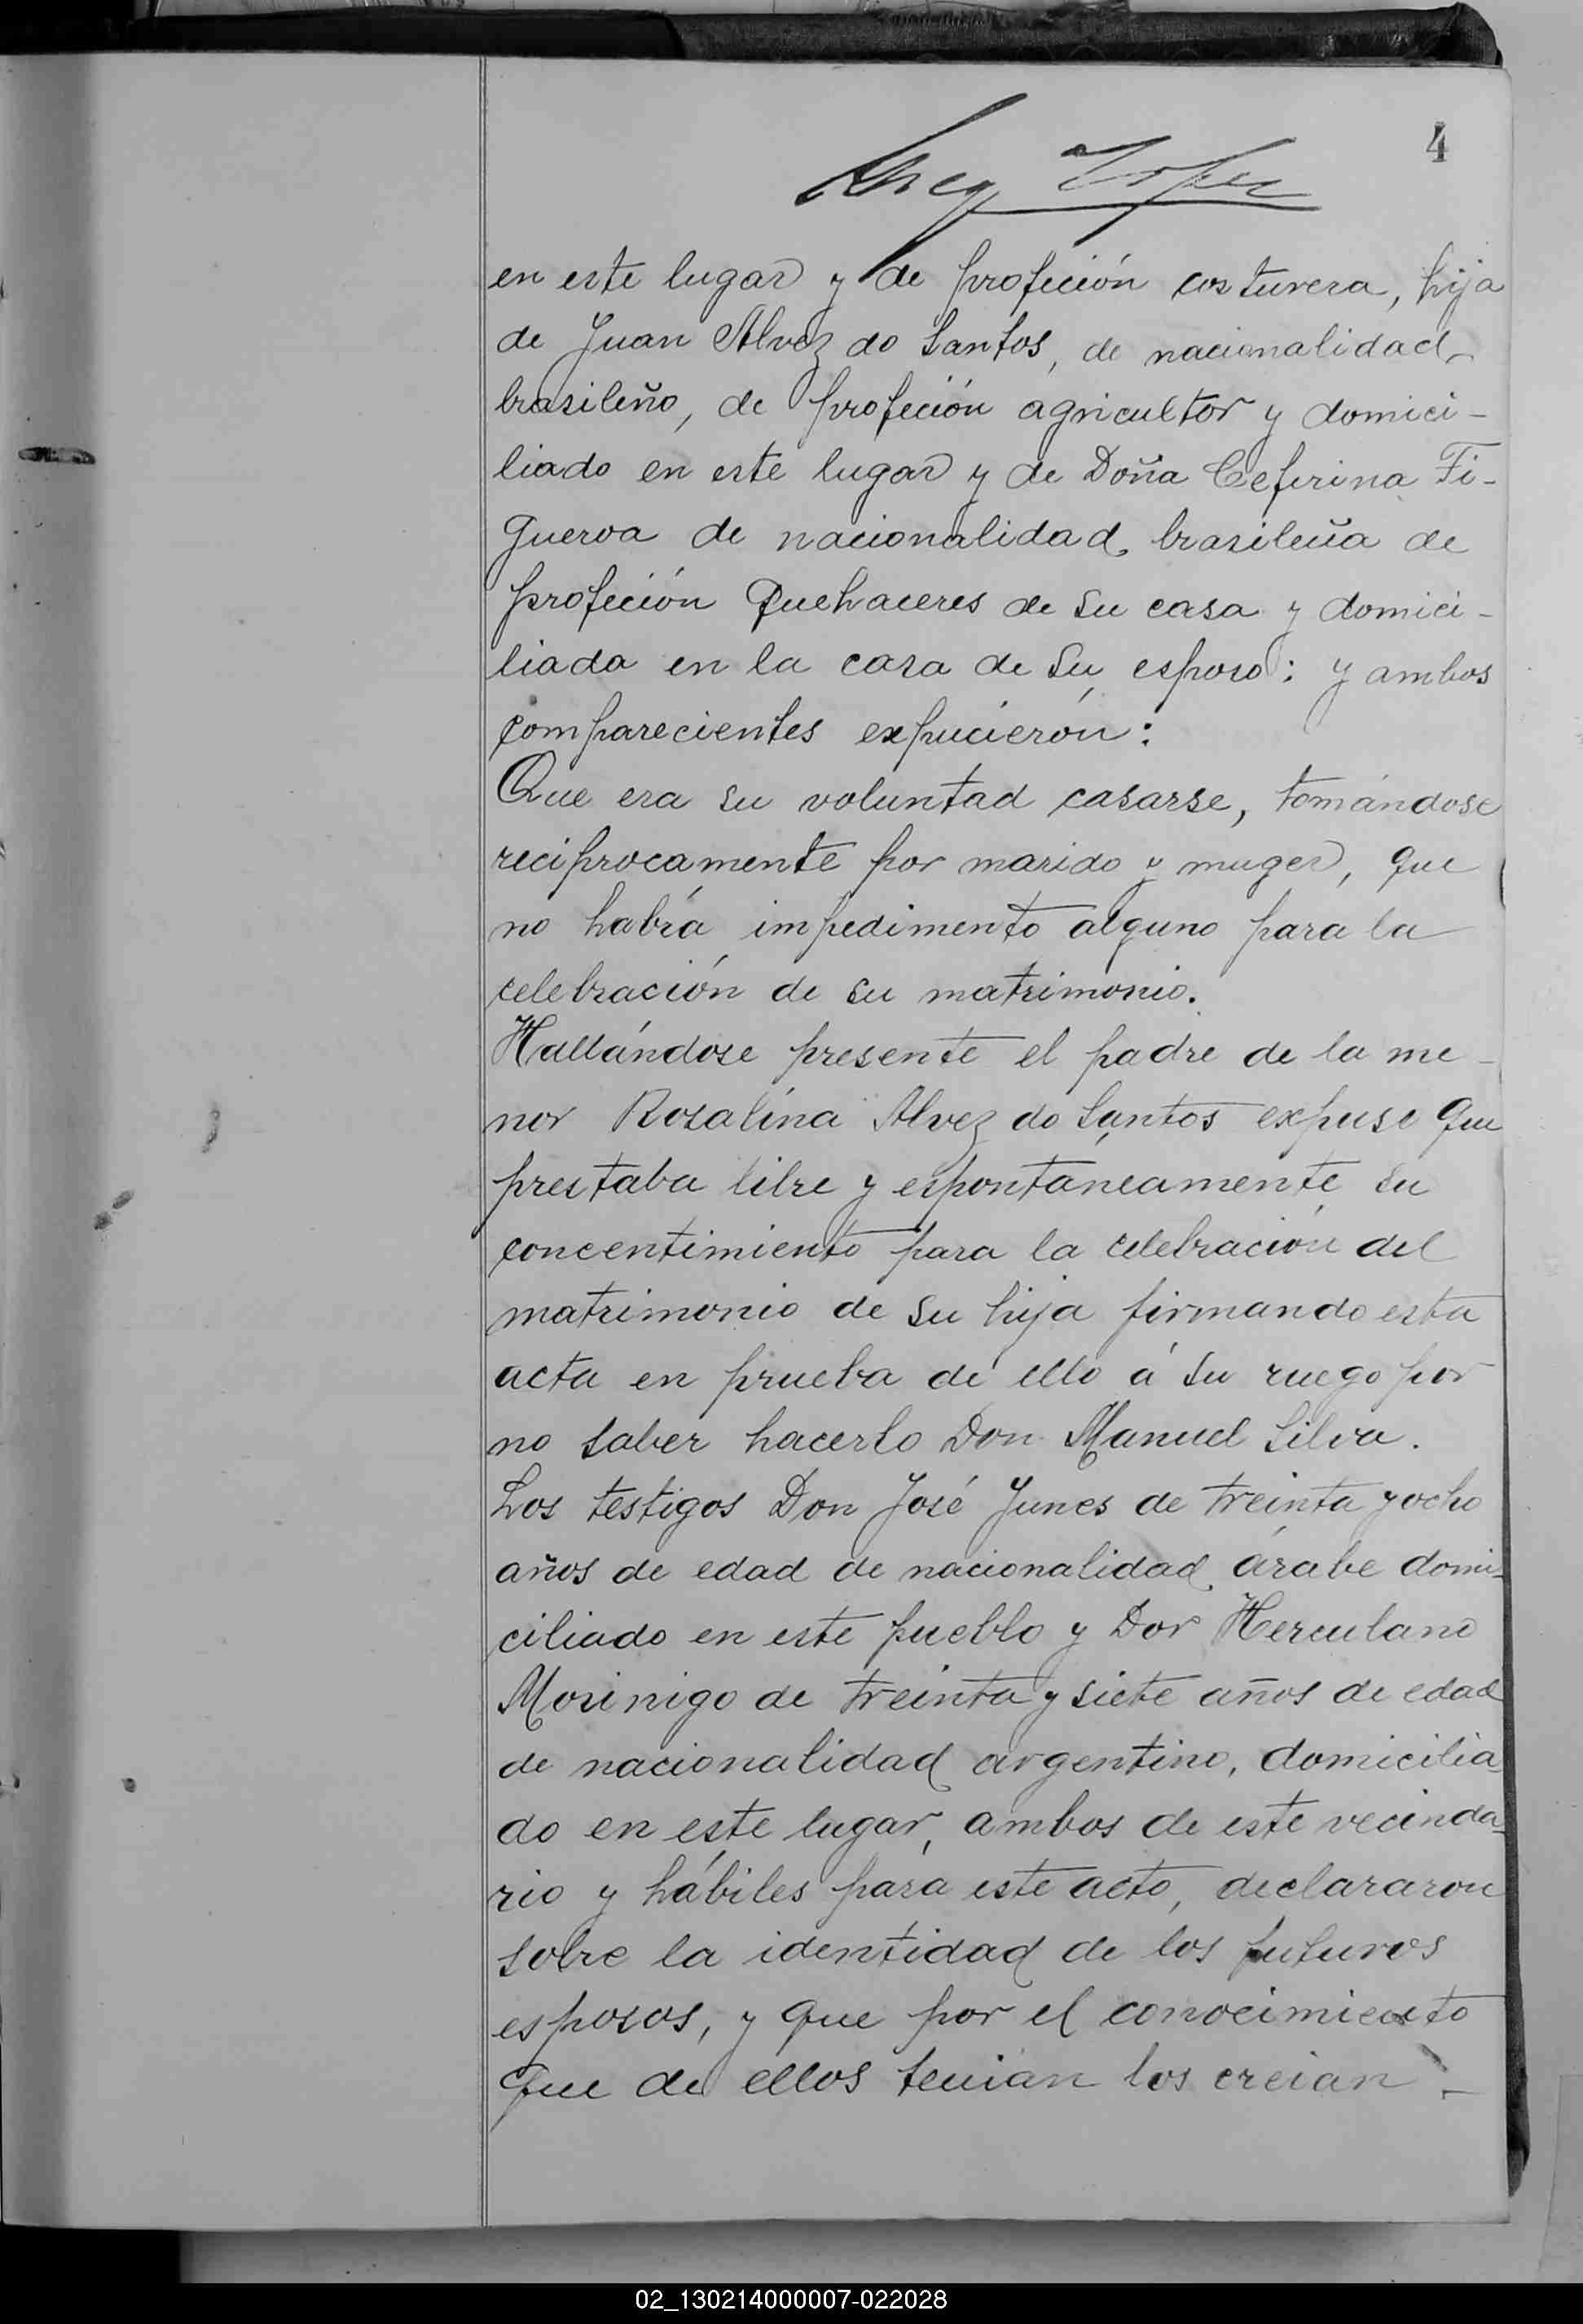 4
en este lugar y de profeción costurera, hija
de Juan Alvez do Santos, de nacionalidad
brasileño, de profeción agricultor y domici-
liado en este lugar y de Doña Ceferina Fi-
gueroa de nacionalidad brasileña de
profeción Quehaceres de su casa y domici-
liada en la casa de su esposo: y ambos
comparecientes expucierón:
Que era su voluntad casarse, tomándose
reciprocamente por marido y muger, que
no habia impedimento alguno para la
celebración de su matrimonio.
Hallándose presente el padre de la me-
nor Rosalina Alvez do Santos expuso que
prestaba libre y espontáneamente su
concentimiento para la celebración del
matrimonio de su hija firmando esta
acta en prueba de ello á su ruego por
no saber hacerlo Don Manuel Silva.
Los testigos Don José Junes de treinta y ocho
años de edad de nacionalidad árabe domi-
ciliado en este pueblo y Don Herculano
Morinigo de treinta y siete años de edad
de nacionalidad argentino, domicilia-
do en este lugar, ambos de este vecinda-
rio y hábiles para este acto, declararon
sobre la identidad de los futuros
esposos, y que por el conocimiento
que de ellos tenian los creian -
02_130214000007-022028